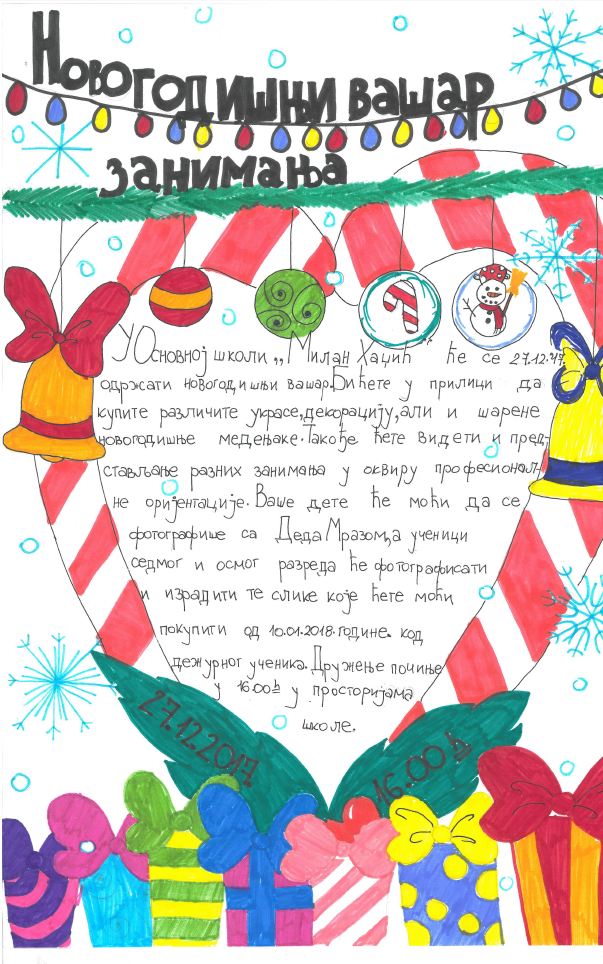 Новогодишњи вашар
занимања
У Основној школи „Милан Хаџић" ће се 27.12.'17.
одржати новогодишњи вашар. Бићете у прилици да
купите различите украсе, декорацију, али и шарене
новогодишње медењаке. Такође ћете видети и пред-
стављање разних занимања у оквиру професионал-
не оријентације. Ваше дете ће моћи да се
фотографише са Деда Мразом, а ученици
седмог и осмог разреда ће фотографисати
и израдити те слике које ћете моћи
покупити од 10.01.2018. године. код
дежурног ученика. Дружење почиње
у 16.00h у просторијама
школе.
27.12.2017
16.00 h